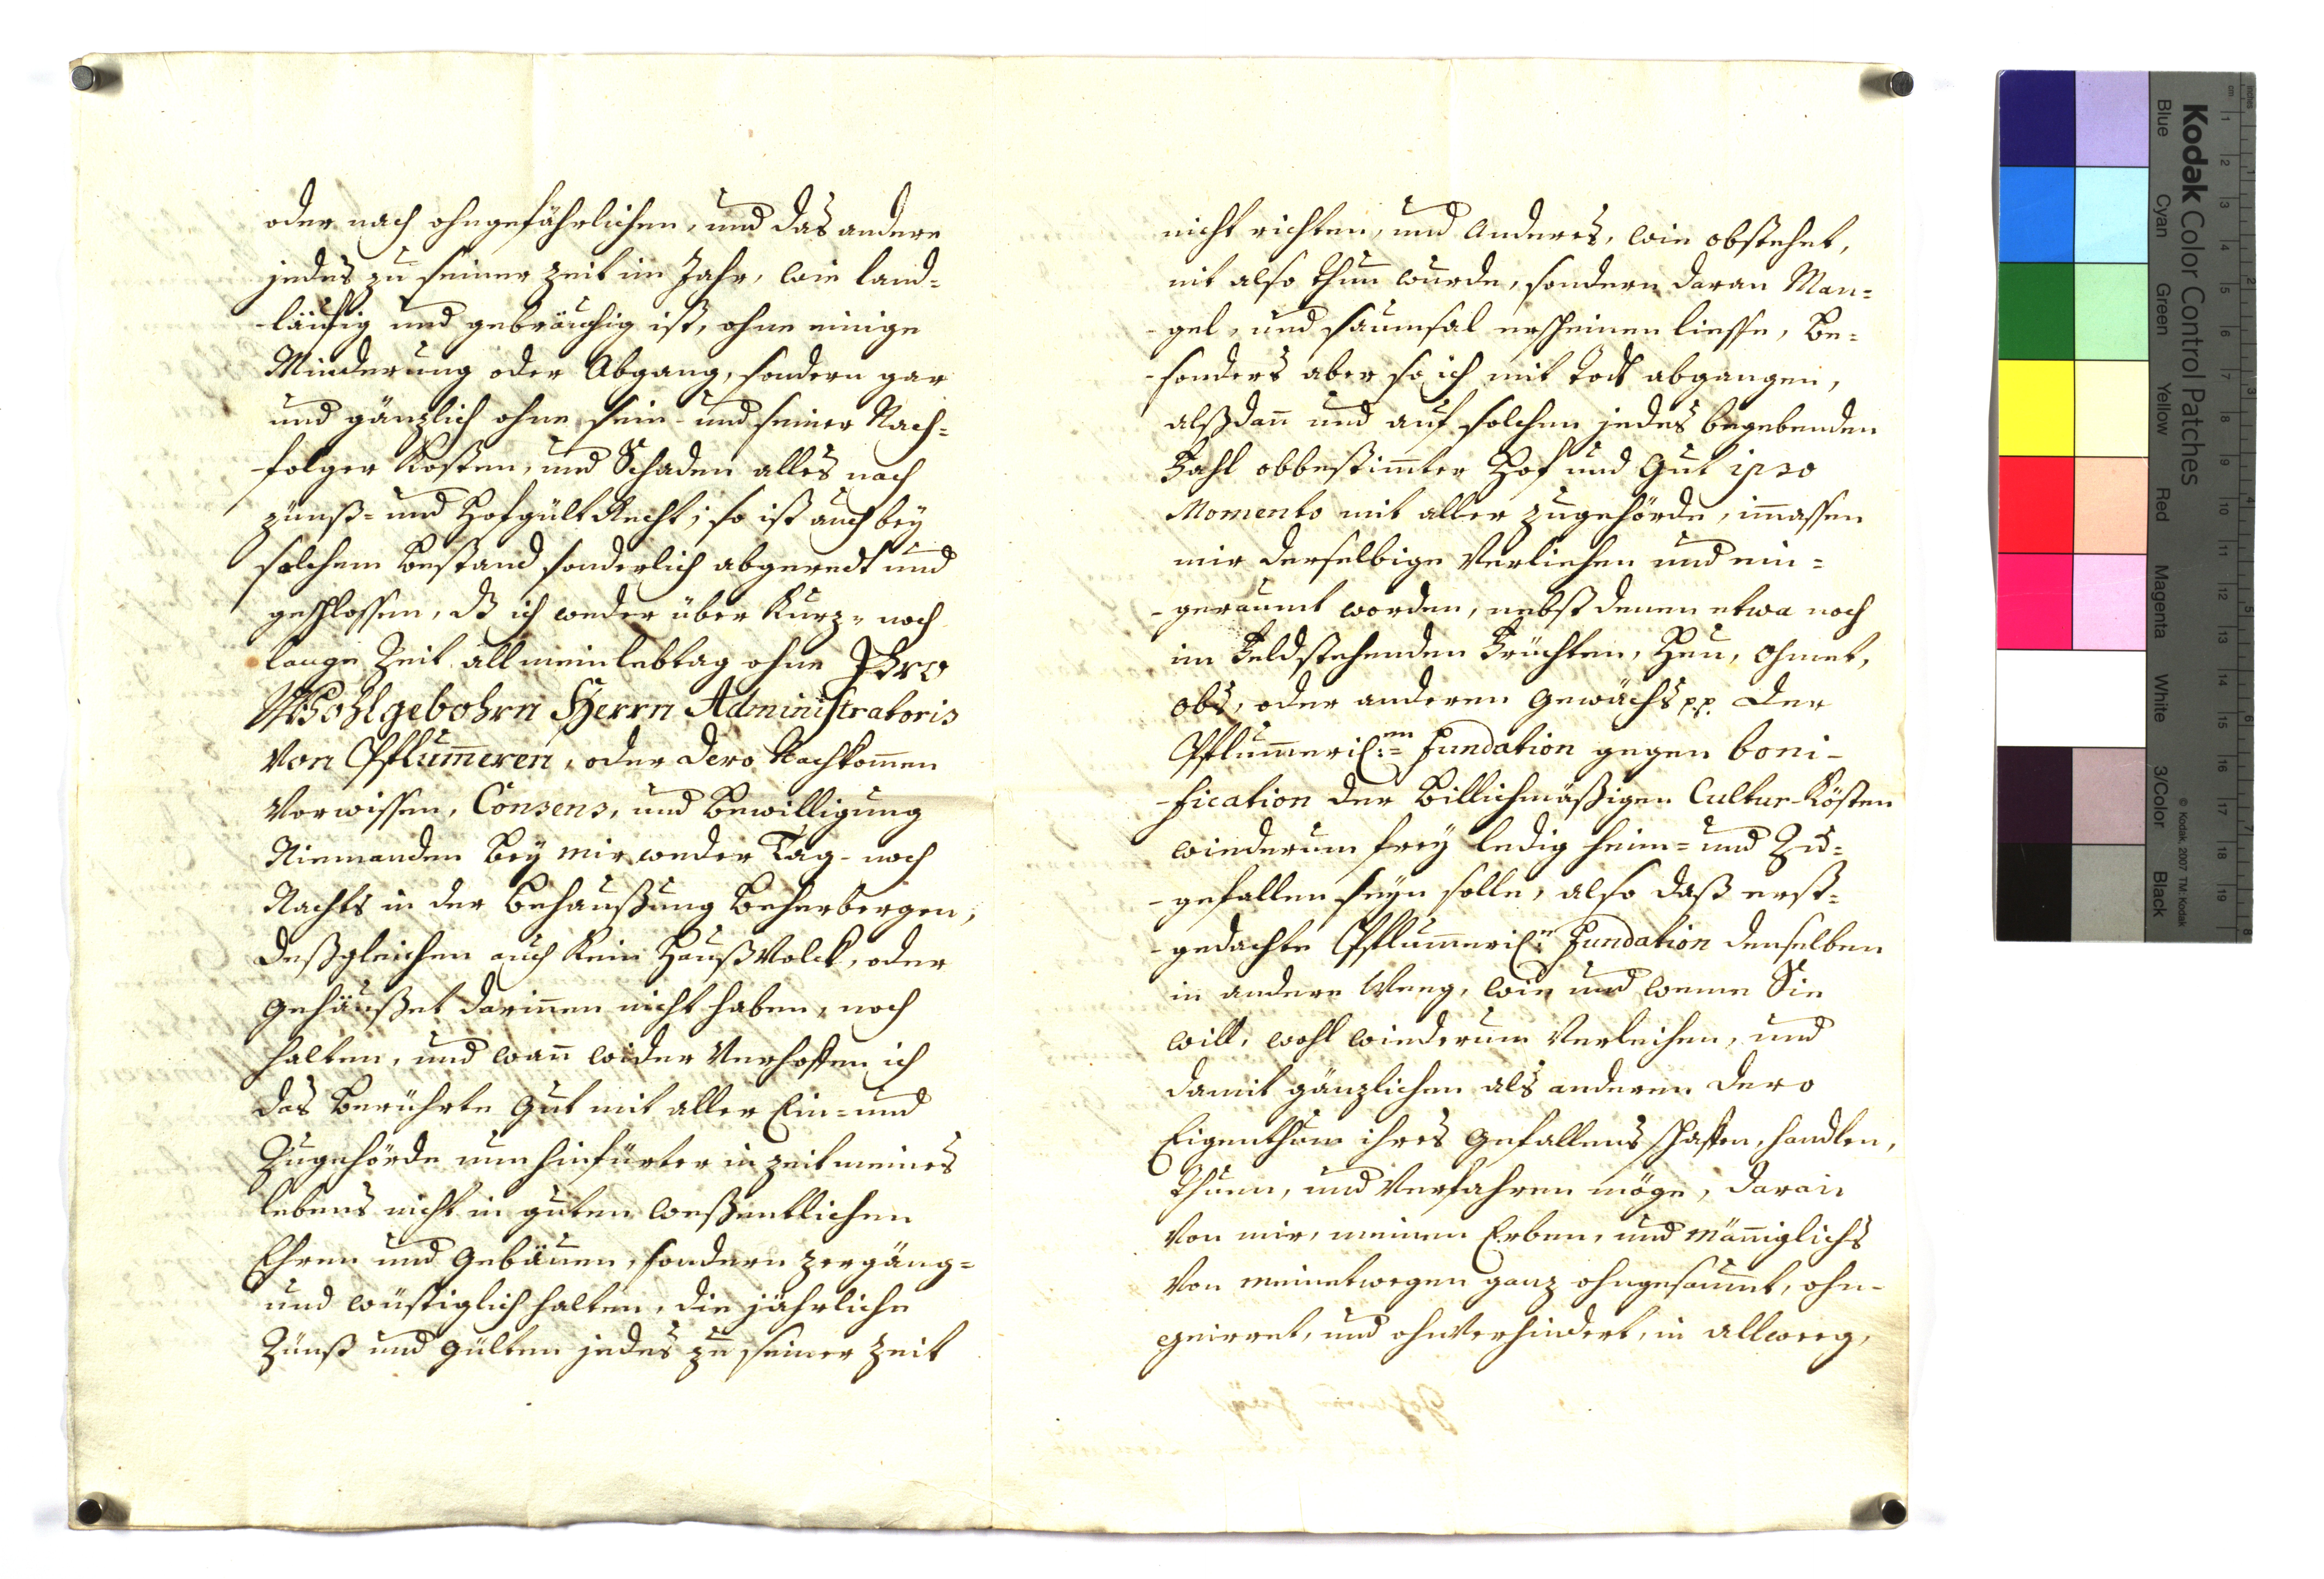 oder nach ohngefährlichen, und das andere
jedes zu seiner Zeit im Jahr, wie land-
-läüfig und gebräuchig ist, ohne einige
Minderung oder Abgang, sondern gar
und gänzlich ohne sein- und seiner Nach-
-folger Kosten, und Schaden alles nach
zünß- und Hofgült Recht; so ist auch bey
solchem Bestand sonderlich abgeredt und
geschlossen, dß ich weder über Kurz- noch
lange Zeit all mein lebtag ohne Ihro
Wohlgebohrn Herrn Administratoris
von Pflum̄eren, oder dero Nachkom̄en
Vorwissen, Consens, und Bewilligung
Niemanden bey mir weder Tag- noch
Nachts in der Behaußung Beherbergen,
deßgleichen auch kein Haußvolck, oder
gehäußet darin̄en nicht haben, noch
halten, und wan̄ wider Verhoffen ich
das Berührte Gut mit aller Ein- und
Zugehörde nun hinfürter in zeit meines
lebens nicht in guten weßentlichen
Ehren und Gebäuen, sondern zergäng-
und wüstiglich halten, die jährliche
Zünß und Gülten jedes zu seiner Zeit
nicht richten, und Anderes, wie obstehet,
nit also thun wurde, sondern daran Man-
-gel, und saumsal erscheinen liesse, Be-
-sonders aber so ich mit Todt abgangen,
alßdan̄ und auf solchen jedes begebenden
Fahl obbestim̄ter Hof und Gut ipso
Momento mit aller zugehörde, im̄assen
mir derselbige Verliehen und ein-
-geraumt worden, nebst denen etwa noch
im Feld stehenden Früchten, Heu, Ohmet,
obs, oder anderen Gewächs pp. der
Pflum̄erischen Fundation gegen boni-
-fication der Billichmäßigen Cultur-Kösten
wiederum frey ledig heim- und Zu-
-gefallen seyn solle, also daß erst-
-gedachte Pflum̄erisch. Fundation denselben
in andere Weeg, wie und weme Sie
will, wohl wiederum Verleihen, und
damit gänzlichen als anderen dero
Eigenthum ihres Gefallens schaffen, handlen,
thuen, und Verfahren möge, daran
von mir, meinen Erben, und män̄iglichs
von meinetwegen ganz ohngesaumt, ohn-
geirret, und ohnverhindert, in allweeg,
Kodak Color Control Patches
Blue Cyan Green Yellow Red Magenta White 3/Color Black
© Kodak, 2007 TM: Kodak
inches
cm
1 2 3 4 5 6 7 8 9 10 11 12 13 14 15 16 17 18 19
1 2 3 4 5 6 7 8